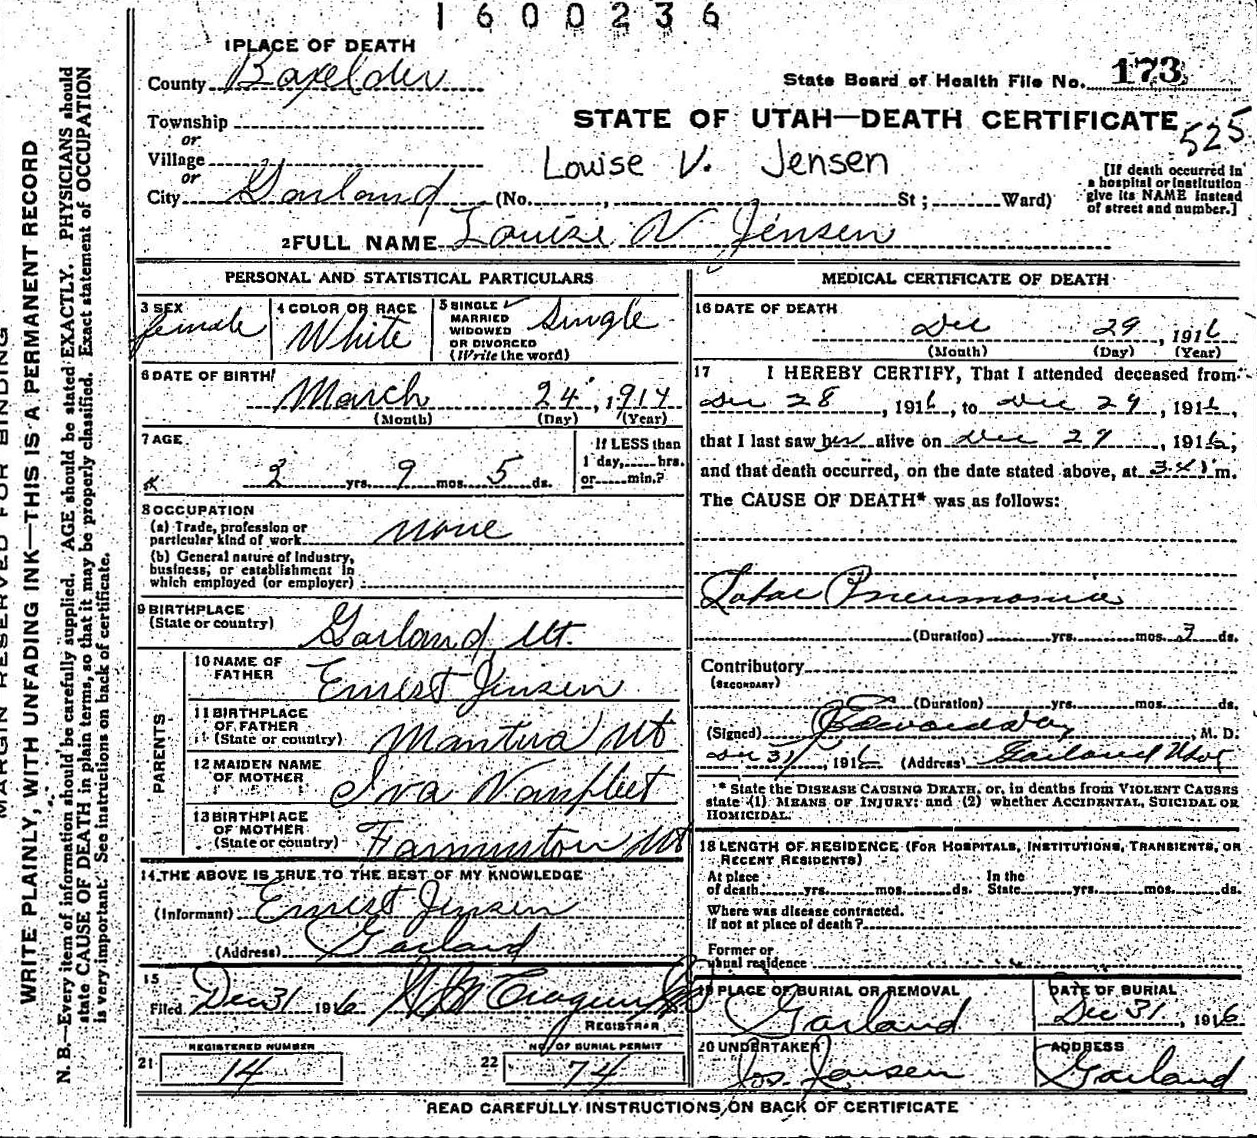 1600236
1 PLACE OF DEATH
County Boxelder
State Board of Health File No. 173
STATE OF UTAH—DEATH CERTIFICATE
525
Township
or
Village
or
City Garland (No. , St ; Ward)
Louise V. Jensen
[If death occurred in
a hospital or institution
give its NAME instead
of street and number.]
2 FULL NAME Louise V Jensen
PERSONAL AND STATISTICAL PARTICULARS
3 SEX
female
4 COLOR OR RACE
White
5 SINGLE
MARRIED
WIDOWED
OR DIVORCED
(Write the word)
Single
6 DATE OF BIRTH
March 24, 1914
(Month) (Day) (Year)
7 AGE
2 yrs. 9 mos. 5 ds.
If LESS than
1 day, hrs.
or min.?
8 OCCUPATION
(a) Trade, profession or
particular kind of work None
(b) General nature of industry,
business, or establishment in
which employed (or employer)
9 BIRTHPLACE
(State or country)
Garland, Ut.
PARENTS
10 NAME OF
FATHER
Ernest Jensen
11 BIRTHPLACE
OF FATHER
(State or country)
Mantua Ut
12 MAIDEN NAME
OF MOTHER
Iva Vanfleet
13 BIRTHPLACE
OF MOTHER
(State or country)
Farminton Ut
14 THE ABOVE IS TRUE TO THE BEST OF MY KNOWLEDGE
(Informant) Ernest Jensen
(Address) Garland
15
Filed Dec 31 1916
REGISTRAR
REGISTERED NUMBER
21 14
NO. OF BURIAL PERMIT
22 74
MEDICAL CERTIFICATE OF DEATH
16 DATE OF DEATH
Dec 29, 1916
(Month) (Day) (Year)
17 I HEREBY CERTIFY, That I attended deceased from
Dec 28, 1916, to Dec 29, 1916,
that I last saw her alive on Dec 29, 1916,
and that death occurred, on the date stated above, at m.
The CAUSE OF DEATH* was as follows:
Lobar Pneumonia
(Duration) yrs. mos. 3 ds.
Contributory
(SECONDARY)
(Duration) yrs. mos. ds.
(Signed) , M. D.
Dec 31, 1916 (Address) Garland Utah
* State the DISEASE CAUSING DEATH, or, in deaths from VIOLENT CAUSES
state (1) MEANS OF INJURY; and (2) whether ACCIDENTAL, SUICIDAL OR
HOMICIDAL.
18 LENGTH OF RESIDENCE (FOR HOSPITALS, INSTITUTIONS, TRANSIENTS, OR
RECENT RESIDENTS)
At place
of death yrs. mos. ds.
In the
State yrs. mos. ds.
Where was disease contracted.
if not at place of death?
Former or
usual residence
19 PLACE OF BURIAL OR REMOVAL
Garland
DATE OF BURIAL
Dec 31, 1916
20 UNDERTAKER
Jos. Jensen
ADDRESS
Garland
READ CAREFULLY INSTRUCTIONS ON BACK OF CERTIFICATE
MARGIN RESERVED FOR BINDING
WRITE PLAINLY, WITH UNFADING INK—THIS IS A PERMANENT RECORD
N. B.—Every item of information should be carefully supplied. AGE should be stated EXACTLY. PHYSICIANS should
state CAUSE OF DEATH in plain terms, so that it may be properly classified. Exact statement of OCCUPATION
is very important. See instructions on back of certificate.